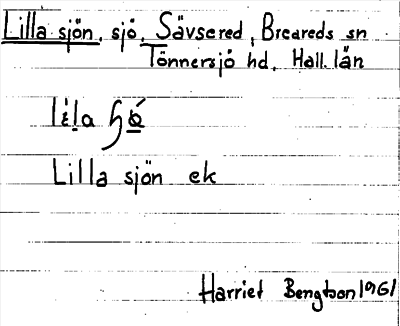 Lilla sjön, sjö, Sävsered, Breareds sn
Tönnersjö hd, Hall. län
Lilla sjön ek
Harriet Bengtson 1961